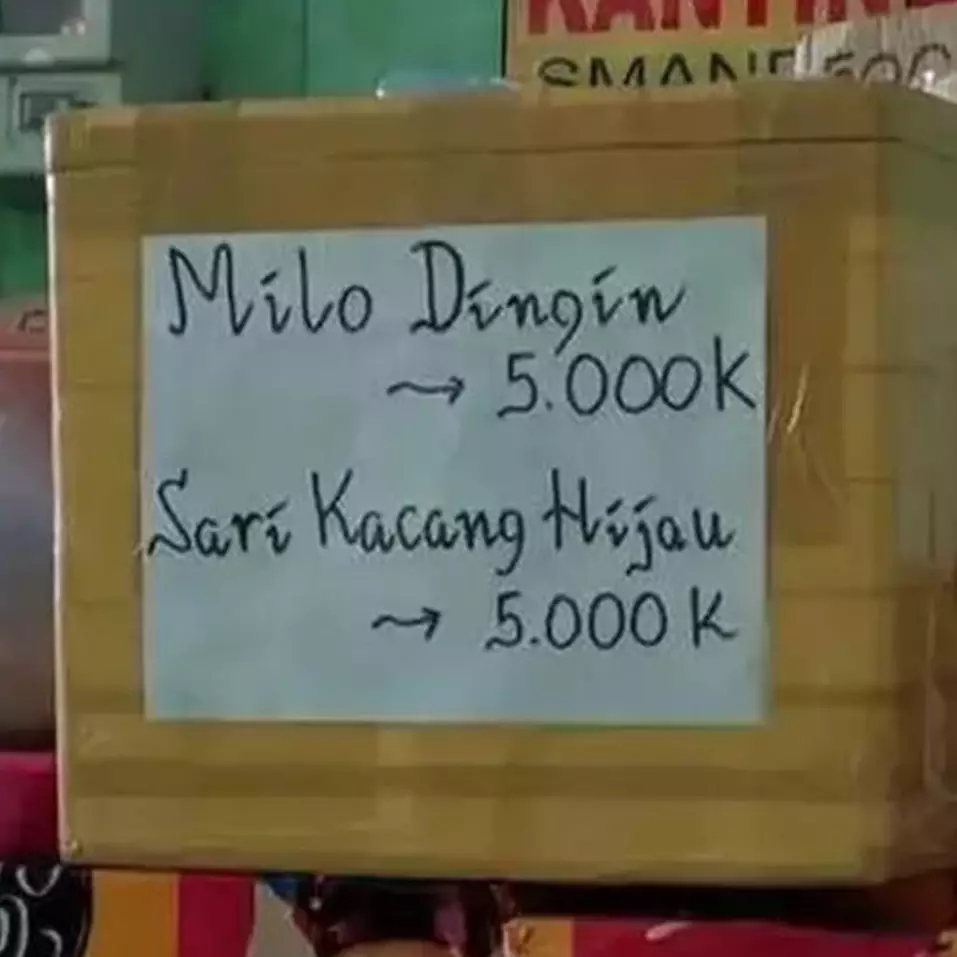 KANTIN
Milo Dingin
→ 5.000K
Sari Kacang Hijau
→ 5.000K